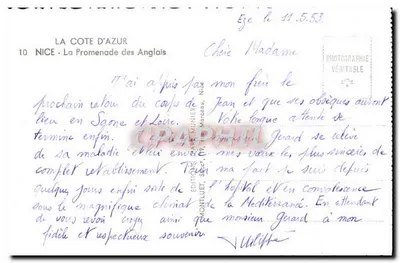 Eze le 11.5.53
LA COTE D'AZUR
10 NICE - La Promenade des Anglais
Chère Madame
PHOTOGRAPHIE
VÉRITABLE
J'ai appris par mon frère le
prochain retour du corps de Jean et que ses obsèques auront
lieu en Saone et Loire. Votre longue attente se
termine enfin. Gérard se relève
de sa maladie et lui envoie mes vœux les plus sincères de
complet rétablissement. Pour ma part je suis depuis
quelques jours enfin sorti de l'hôpital et en convalescence
sous le magnifique climat de la Méditerranée. En attendant
de vous revoir croyez ainsi que monsieur Gérard à mon
fidèle et respectueux souvenir
CPAPHIL